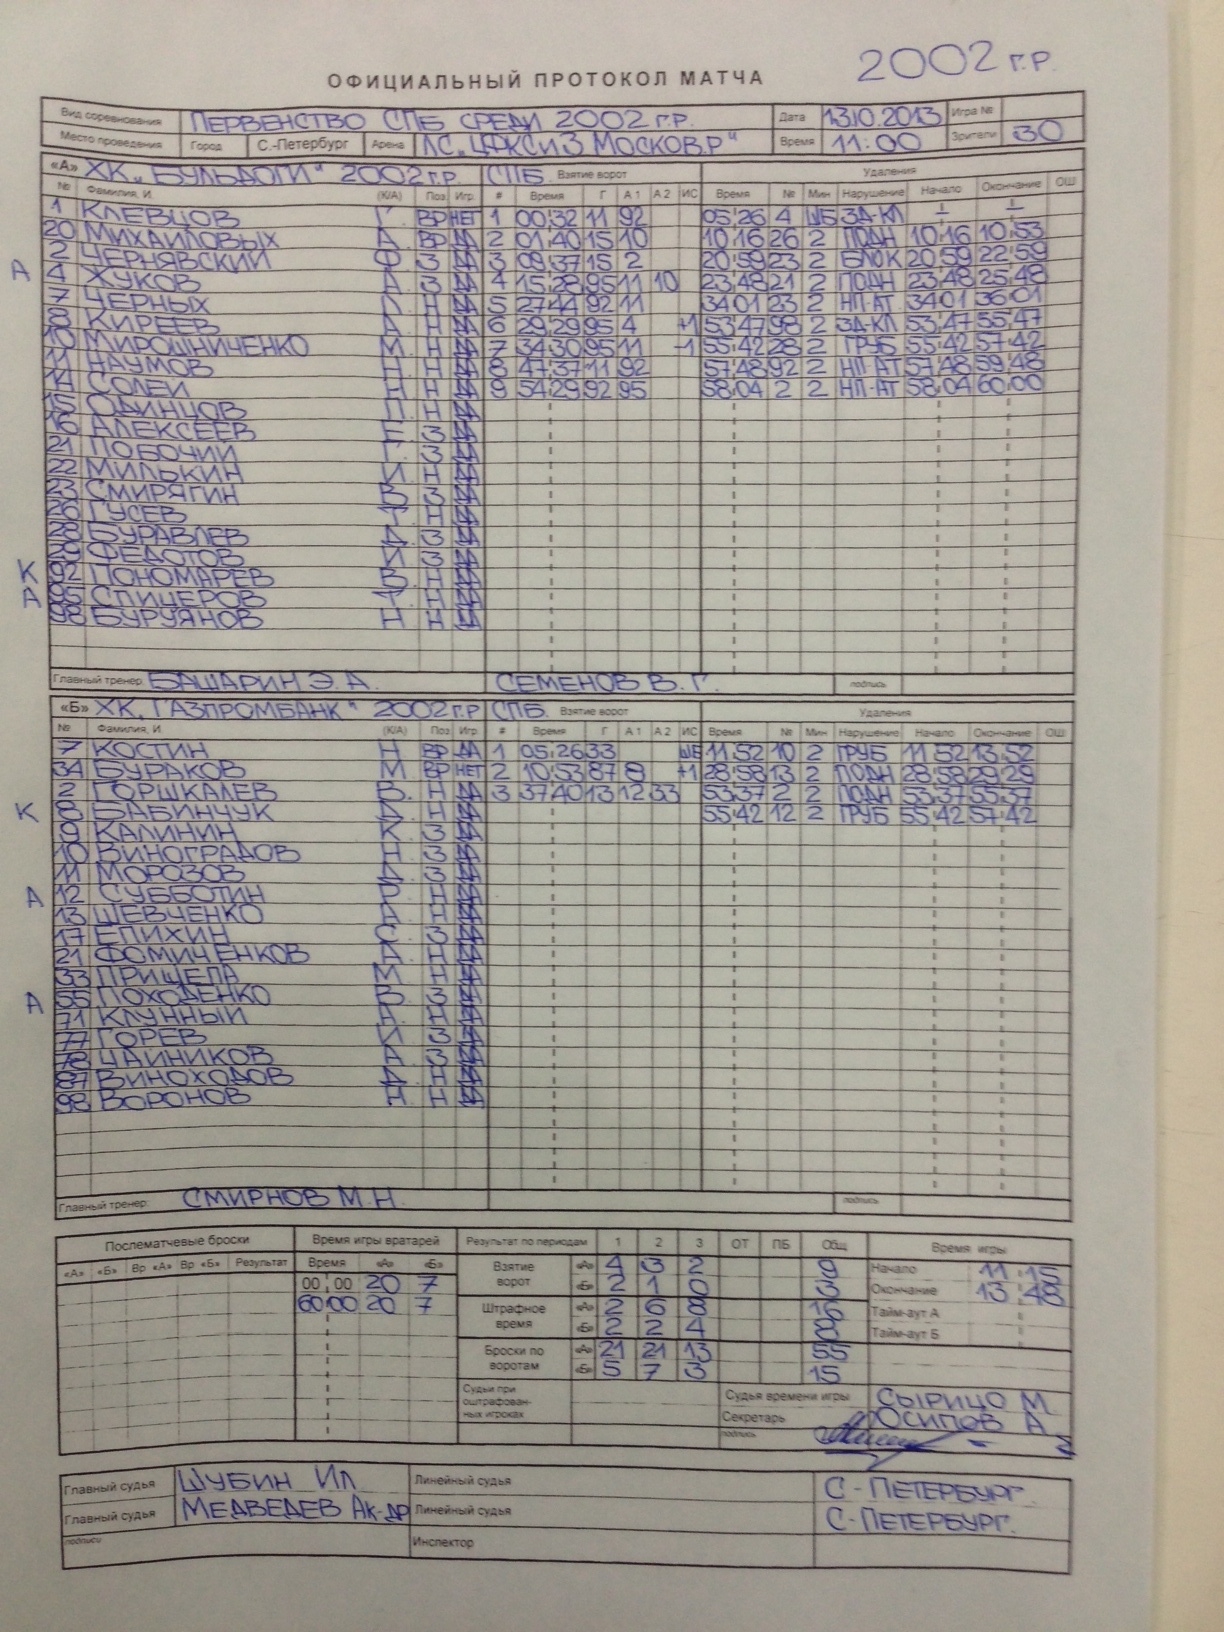 2002 г.р.
ОФИЦИАЛЬНЫЙ ПРОТОКОЛ МАТЧА
Вид соревнования ПЕРВЕНСТВО СПБ СРЕДИ 2002 г.р. Дата 13.10.2013 Игра №
Место проведения Город С.-Петербург Арена ЛС „ЦФКСиЗ МОСКОВ.Р" Время 11:00 Зрители 30
«А» ХК „БУЛЬДОГИ" 2002 г.р. СПБ. Взятие ворот Удаления
№ Фамилия, И. (К/А) Поз Игр # Время Г А1 А2 ИС Время № Мин Нарушение Начало Окончание ОШ
1 КЛЕВЦОВ Г. ВР НЕТ 1 00:32 11 92 05:26 4 ШБ ЗД-КЛ – –
20 МИХАЙЛОВЫХ А. ВР ДА 2 01:40 15 10 10:16 26 2 ПОДН 10:16 10:53
2 ЧЕРНЯВСКИЙ Ф. З ДА 3 09:37 15 2 20:59 23 2 БЛОК 20:59 22:59
А 4 ЖУКОВ А. З ДА 4 15:28 95 11 10 23:48 21 2 ПОДН 23:48 25:48
7 ЧЕРНЫХ Н ДА 5 27:44 92 11 34:01 23 2 НП-АТ 34:01 36:01
8 КИРЕЕВ А. Н ДА 6 29:29 95 4 +1 53:47 98 2 ЗД-КЛ 53:47 55:47
10 МИРОШНИЧЕНКО М. Н ДА 7 34:30 95 11 -1 55:42 28 2 ГРУБ 55:42 57:42
11 НАУМОВ Н. Н ДА 8 47:37 11 92 57:48 92 2 НП-АТ 57:48 59:48
14 СОЛЕЙ Н Н ДА 9 54:29 92 95 58:04 2 2 НП-АТ 58:04 60:00
15 ОДИНЦОВ Н ДА
16 АЛЕКСЕЕВ Е. З ДА
21 ПОБОЧИЙ Г. З ДА
22 МИЛЬКИН И. Н ДА
23 СМИРЯГИН В. З ДА
26 ГУСЕВ Т. Н ДА
28 БУРАВЛЕВ Д. З ДА
29 ФЕДОТОВ И. З ДА
К 92 ПОНОМАРЕВ В. Н ДА
А 95 СПИЦЕРОВ Т. Н ДА
98 БУРУЯНОВ Н. Н ДА
Главный тренер БАШАРИН Э.А. СЕМЕНОВ В.Г. подпись
«Б» ХК „ГАЗПРОМБАНК" 2002 г.р СПБ. Взятие ворот Удаления
№ Фамилия, И. (К/А) Поз Игр # Время Г А1 А2 ИС Время № Мин Нарушение Начало Окончание ОШ
7 КОСТИН Н ВР ДА 1 05:26 33 ШБ 11:52 10 2 ГРУБ 11:52 13:52
34 БУРАКОВ М. ВР НЕТ 2 10:53 87 8 +1 28:58 13 2 ПОДН 28:58 29:29
2 ГОРШКАЛЕВ В. Н ДА 3 37:40 13 12 33 53:37 2 2 ПОДН 53:37 55:37
К 8 БАБИНЧУК Д. Н ДА 55:42 12 2 ГРУБ 55:42 57:42
9 КАЛИНИН К. З ДА
10 ВИНОГРАДОВ Н. З ДА
11 МОРОЗОВ Д. З ДА
А 12 СУББОТИН Р. Н ДА
13 ШЕВЧЕНКО А. Н ДА
17 ЕПИХИН С. З ДА
21 ФОМИЧЕНКОВ А. Н ДА
33 ПРИЩЕПА М. Н ДА
А 55 ПОХОДЕНКО В. З ДА
71 КЛУННЫЙ А. Н ДА
77 ГОРЕВ И З ДА
78 ЧАЙНИКОВ А. З ДА
87 ВИНОХОДОВ Д. Н ДА
98 ВОРОНОВ Н. Н ДА
Главный тренер СМИРНОВ М.Н. подпись
Послематчевые броски Время игры вратарей Результат по периодам 1 2 3 ОТ ПБ Общ Время игры
«А» «Б» Вр «А» Вр «Б» Результат Время «А» «Б»
00:00 20 7
60:00 20 7
Взятие ворот «А» 4 3 2 9 Начало 11:15
«Б» 2 1 0 3 Окончание 13:48
Штрафное время «А» 2 6 8 16 Тайм-аут А
«Б» 2 2 4 8 Тайм-аут Б
Броски по воротам «А» 21 21 13 55
«Б» 5 7 3 15
Судьи при оштрафованных игроках Судья времени игры СЫРИЦО М.
Секретарь ОСИПОВ А.
подпись
Главный судья ШУБИН Ил Линейный судья С-ПЕТЕРБУРГ.
Главный судья МЕДВЕДЕВ Ак-др Линейный судья С-ПЕТЕРБУРГ.
подписи Инспектор